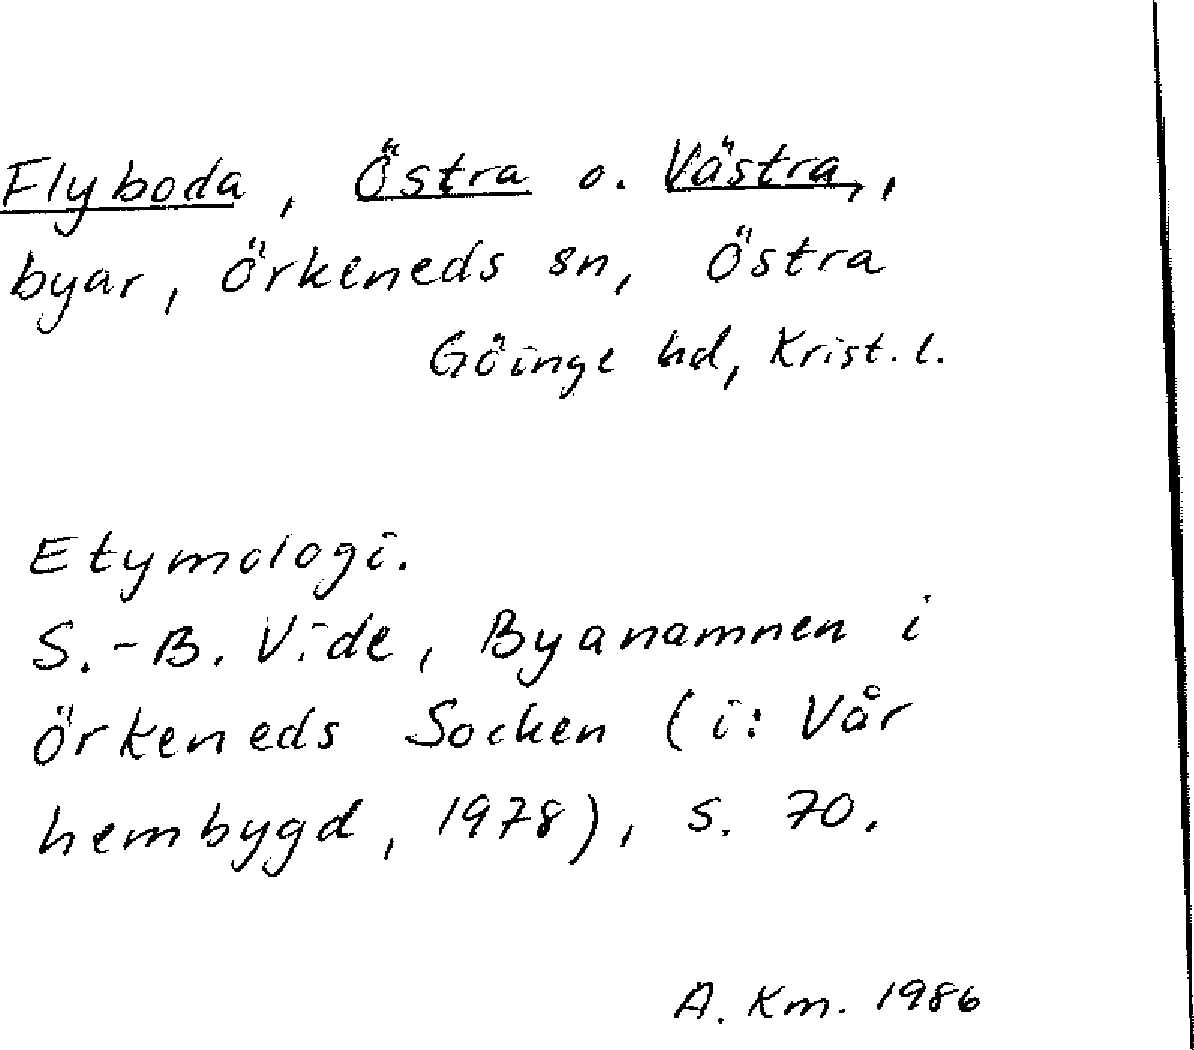 Flyboda, Östra o. Västra,
byar, Örkeneds sn, Östra
Göinge hd, Krist. l.
Etymologi.
S.-B. Vide, Byanamnen i
Örkeneds Socken (i: Vår
hembygd, 1978), s. 70.
A. Km. 1986